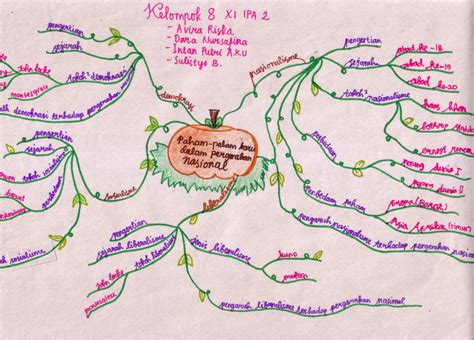 Kelompok 8 XI IPA 2
- Avira Riska
- Dara Nursafima
- Intan Putri A.X.U
- Sulistyo B.
Paham-paham baru
dalam pergerakan
nasional
nasionalisme
pengertian
sejarah
abad ke-18
abad ke-19
abad ke-20
tokoh² nasionalisme
hans kohn
lothrop
ernest renan
perbedaan
perang dunia I
perang dunia II
Perbedaan paham
Eropa (Barat)
Asia Afrika (timur)
pengaruh nasionalisme terhadap pergerakan nasional
demokrasi
pengertian
sejarah
tokoh² demokrasi
john locke
montesqieu
demokrasi terhadap pergerakan
sosialisme
pengertian
sejarah
tokoh
sosialisme
liberalisme
pengertian
sejarah liberalisme
tokoh liberalisme
john locke
montesqieu
jenis liberalisme
kuno
modern
pengaruh liberalisme terhadap pergerakan nasional